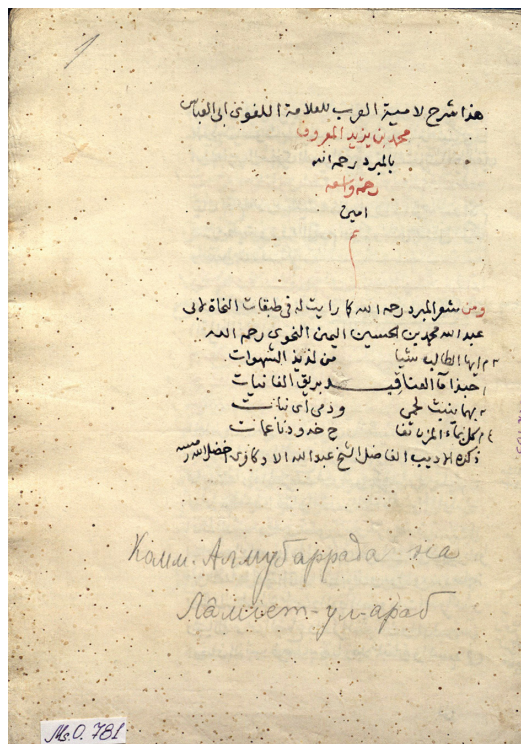 هذا شرح لامية العرب للعلامة اللغوى ابى العباس
محمد بن يزيد المعروف
بالمبرد رحمه الله
رحمة واسعة
امين
م
ومن شعر المبرد رحمه الله كما رايت له فى طبقات النحاة لابى
عبد الله محمد بن الحسين اليمنى النحوى رحمه الله
٣ م ايها الطالب شيا من لذيذ الشهوات
١ حبذا ماء العناقيد بريق الغانيات
٢ بهما ينبت لحمى ودمى اى نبات
٤ م كل بماء المزن تفا ح خدود ناعمات
ذكره الاديب الفاضل الشيخ عبد الله
Комм. Алмубаррада на
Ламіет-ул-араб
Ms.O. 781